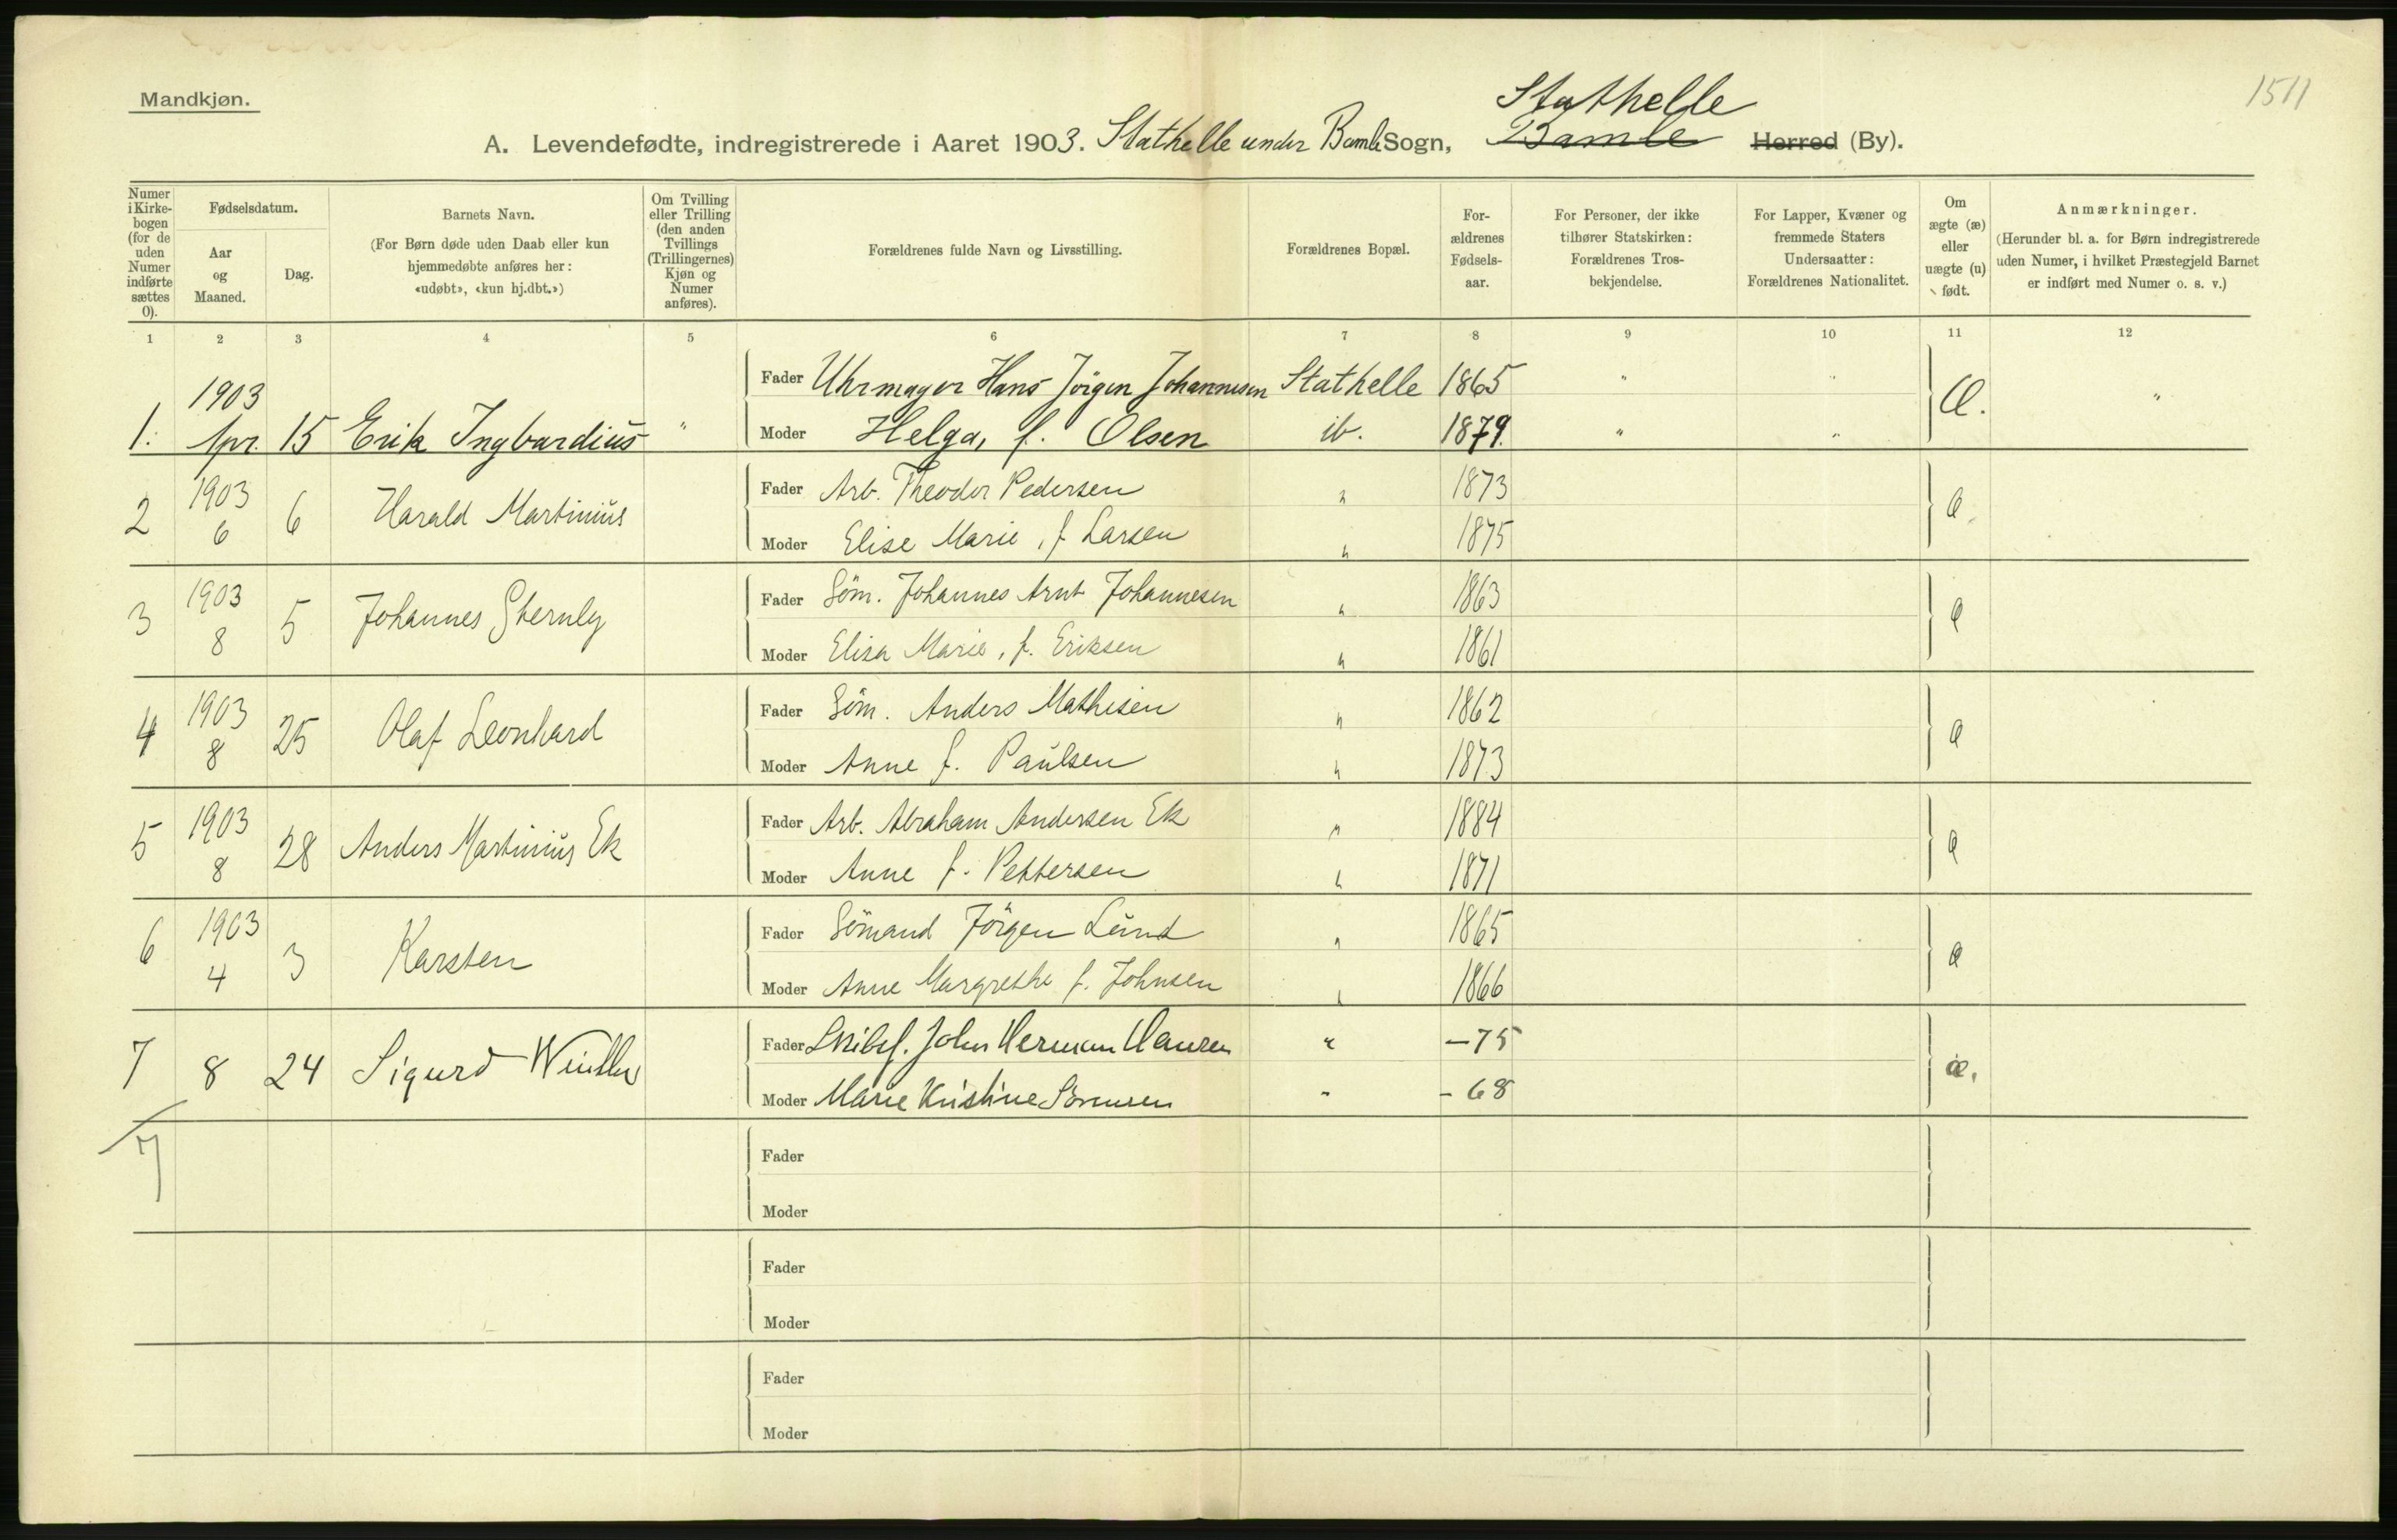 1511
Mandkjøn.
Stathelle
A. Levendefødte, indregistrerede i Aaret 1903. Stathelle under Bamle Sogn, Bamle Herred (By).
Numer i Kirke-bogen (for de uden Numer indførte sættes 0).
Fødselsdatum.
Aar og Maaned.
Dag.
Barnets Navn.
(For Børn døde uden Daab eller kun hjemmedøbte anføres her: «udøbt», «kun hj.dbt.»)
Om Tvilling eller Trilling (den anden Tvillings (Trillingernes) Kjøn og Numer anføres).
Forældrenes fulde Navn og Livsstilling.
Forældrenes Bopæl.
For-ældrenes Fødsels-aar.
For Personer, der ikke tilhører Statskirken: Forældrenes Tros-bekjendelse.
For Lapper, Kvæner og fremmede Staters Undersaatter: Forældrenes Nationalitet.
Om ægte (æ) eller uægte (u) født.
Anmærkninger.
(Herunder bl. a. for Børn indregistrerede uden Numer, i hvilket Præstegjeld Barnet er indført med Numer o. s. v.)
1 2 3 4 5 6 7 8 9 10 11 12
1903
Fader Uhrmager Hans Jörgen Johannesen Stathelle 1865 " "
1. Apr. 15 Erik Ingvardius " Æ. "
Moder Helga, f. Olsen ib. 1879. " "
1903 Fader Arb. Theodor Pedersen " 1873
2 6 6 Harald Martinius Æ.
Moder Elise Marie, f Larsen " 1875
1903 Fader Söm. Johannes Arnt Johannesen " 1863
3 8 5 Johannes Sternly Æ
Moder Elisa Marie, f. Eriksen " 1861
1903 Fader Söm. Anders Mathisen " 1862
4 8 25 Olaf Leonhard Æ
Moder Anne f. Paulsen " 1873
1903 Fader Arb. Abraham Andersen Ek " 1884
5 8 28 Anders Martinius Ek Æ
Moder Anne f. Pettersen " 1871
1903 Fader Sömand Jörgen Lund " 1865
6 4 3 Karsten Æ
Moder Anne Margrethe f. Johnsen " 1866
Fader Skibsf. John Herman Hansen " –75
7 8 24 Sigurd æ.
Moder Marie Kristine Sörensen " –68
7
Fader
Moder
Fader
Moder
Fader
Moder